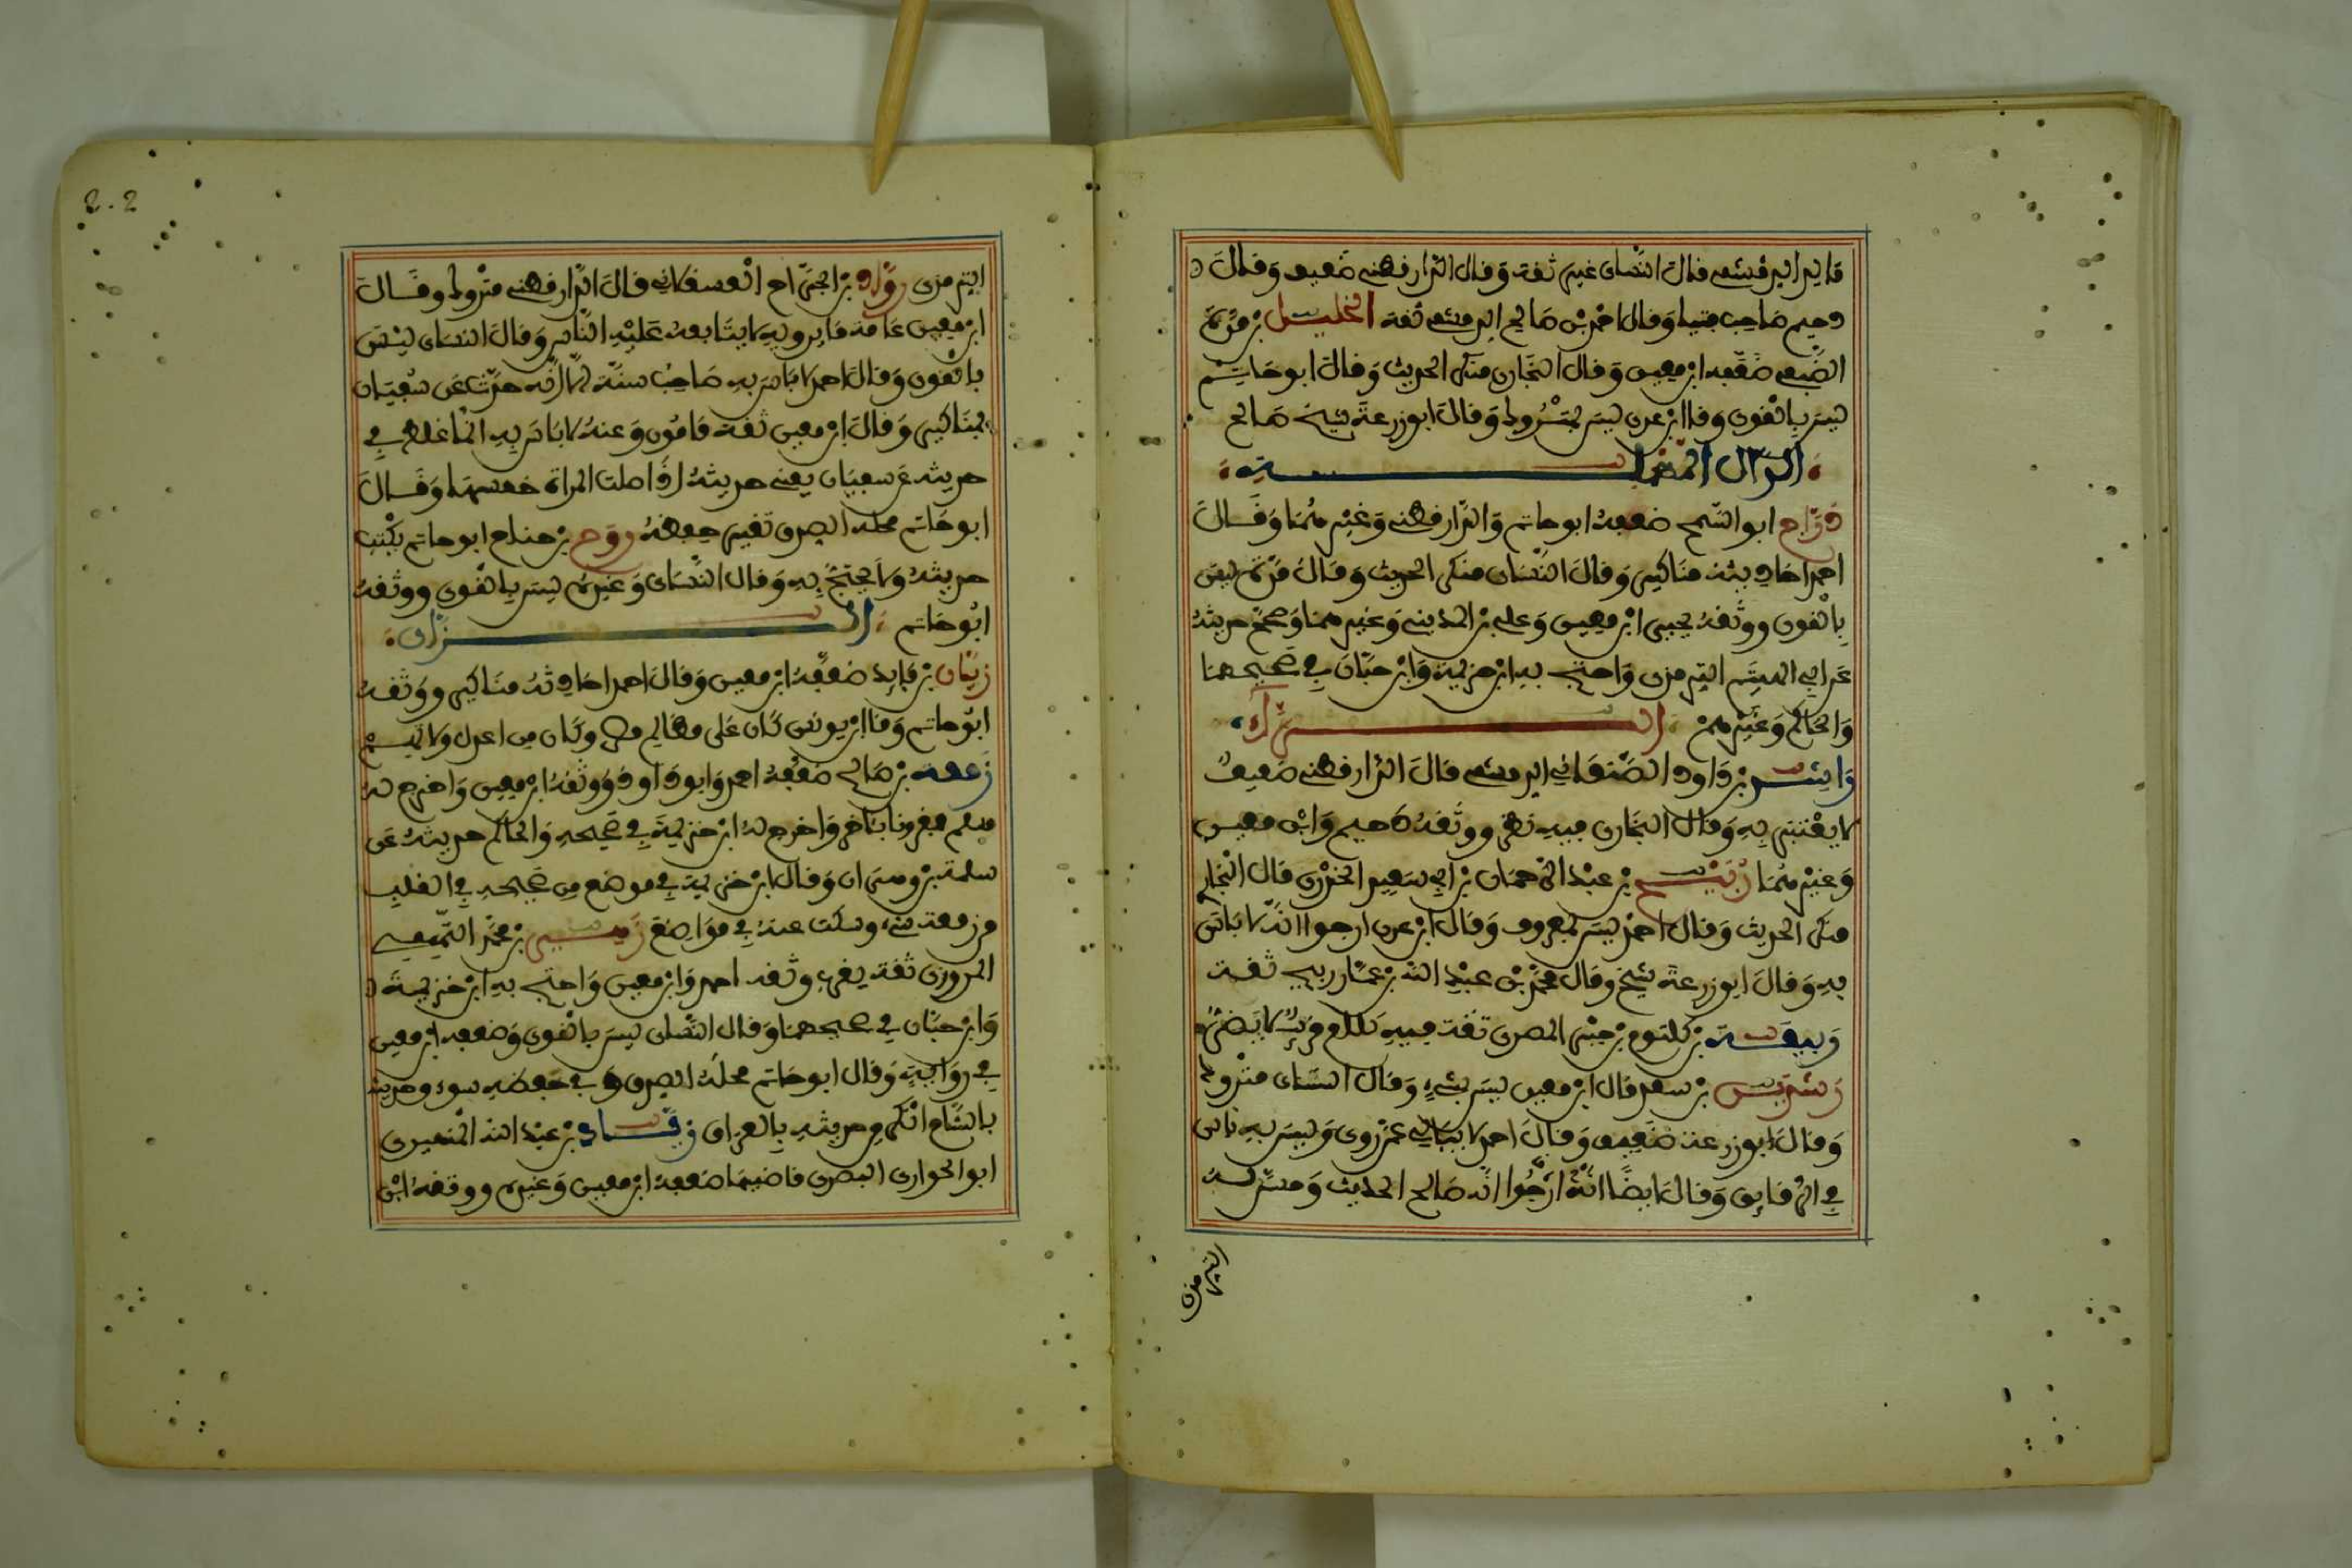 قال النساى غير ثقة وقال الدارقطنى ضعيف وقال
دحيم صاحب فتيا وقال احمد بن صالح الدمشقى ثقة الخليل بن مرة
الضبعى ضعفه ابن معين وقال البخارى منكر الحديث وقال ابو حاتم
ليس بالقوى وقال ابن عدى ليس بمتروك وقال ابو زرعة شيخ صالح
الدال المهملة
دراج ابو السمح ضعفه ابو حاتم والدارقطنى وغيرهما وقال
احمد احاديثه مناكير وقال النساى منكر الحديث وقال مرة ليس
بالقوى ووثقه يحيى ابن معين وعلى بن المدينى وغيرهما وصحح حديثه
عن ابى الهيثم الترمذى واحتج به ابن خزيمة وابن حبان فى صحيحهما
والحاكم وغيرهم الراء
راشد بن داود الصنعانى الدمشقى قال الدارقطنى ضعيف
لا يعتبر به وقال البخارى فيه نظر ووثقه دحيم وابن معين
وغيرهما ربيح بن عبد الرحمان بن ابى سعيد الخدرى قال البخارى
منكر الحديث وقال احمد ليس بمعروف وقال ابن عدى ارجوا انه لا باس
به وقال ابو زرعة شيخ وقال محمد بن عبد الله بن عمار ربيح ثقة
ربيعة بن كلثوم بن جبر المصرى ثقة فيه كلام قريب لا يضره
رشدين بن سعد قال ابن معين ليس بشىء وقال النساى متروك
وقال ابو زرعة ضعيف وقال احمد لا يبالى عمن روى وليس به باس
فى الرقايق وقال ايضا انه ارجوا انه صالح الحديث وحسن له
الترمذى
الترمذى رواد بن الجراح العسقلانى قال الدارقطنى متروك وقال
ابن معين عامة ما يرويه لا يتابعه عليه الناس وقال النساى ليس
بالقوى وقال احمد لا باس به صاحب سنة الا انه حدث عن سفيان
بمناكير وقال ابن معين ثقة مامون وعنه لا باس به انما غلط فى
حديثه عن سفيان يعنى حديثه اذا صلت المراة خمسها وقال
ابو حاتم محله الصدق تغير حفظه روح بن جناح ابو حاتم يكتب
حديثه ولا يحتج به وقال النساى وغيره ليس بالقوى ووثقه
ابو حاتم الزاى
زبان بن فايد ضعفه ابن معين وقال احمد احاديثه مناكير ووثقه
ابو حاتم وقال ابن يونس كان على مظالم مصر وكان من اعدل ولاتهم
زمعة بن صالح ضعفه احمد وابو داود ووثقه ابن معين واخرج له
مسلم مقرونا باخر واخرج له ابن خزيمة فى صحيحه والحاكم حديثه عن
سلمة بن وهرام وقال ابن خزيمة فى موضع من صحيحه فى القلب
من زمعة شىء وسكت عنه فى مواضع زهير بن محمد التميمى
المروزى ثقة يغرب وثقه احمد وابن معين واحتج به ابن خزيمة
وابن حبان فى صحيحهما وقال النساى ليس بالقوى وضعفه ابن معين
فى رواية وقال ابو حاتم محله الصدق وفى حفظه سوء وحديثه
بالشام انكر من حديثه بالعراق زياد بن عبد الله النميرى
ابو الحوارى البصرى قاضيها ضعفه ابن معين وغيره ووثقه ابن